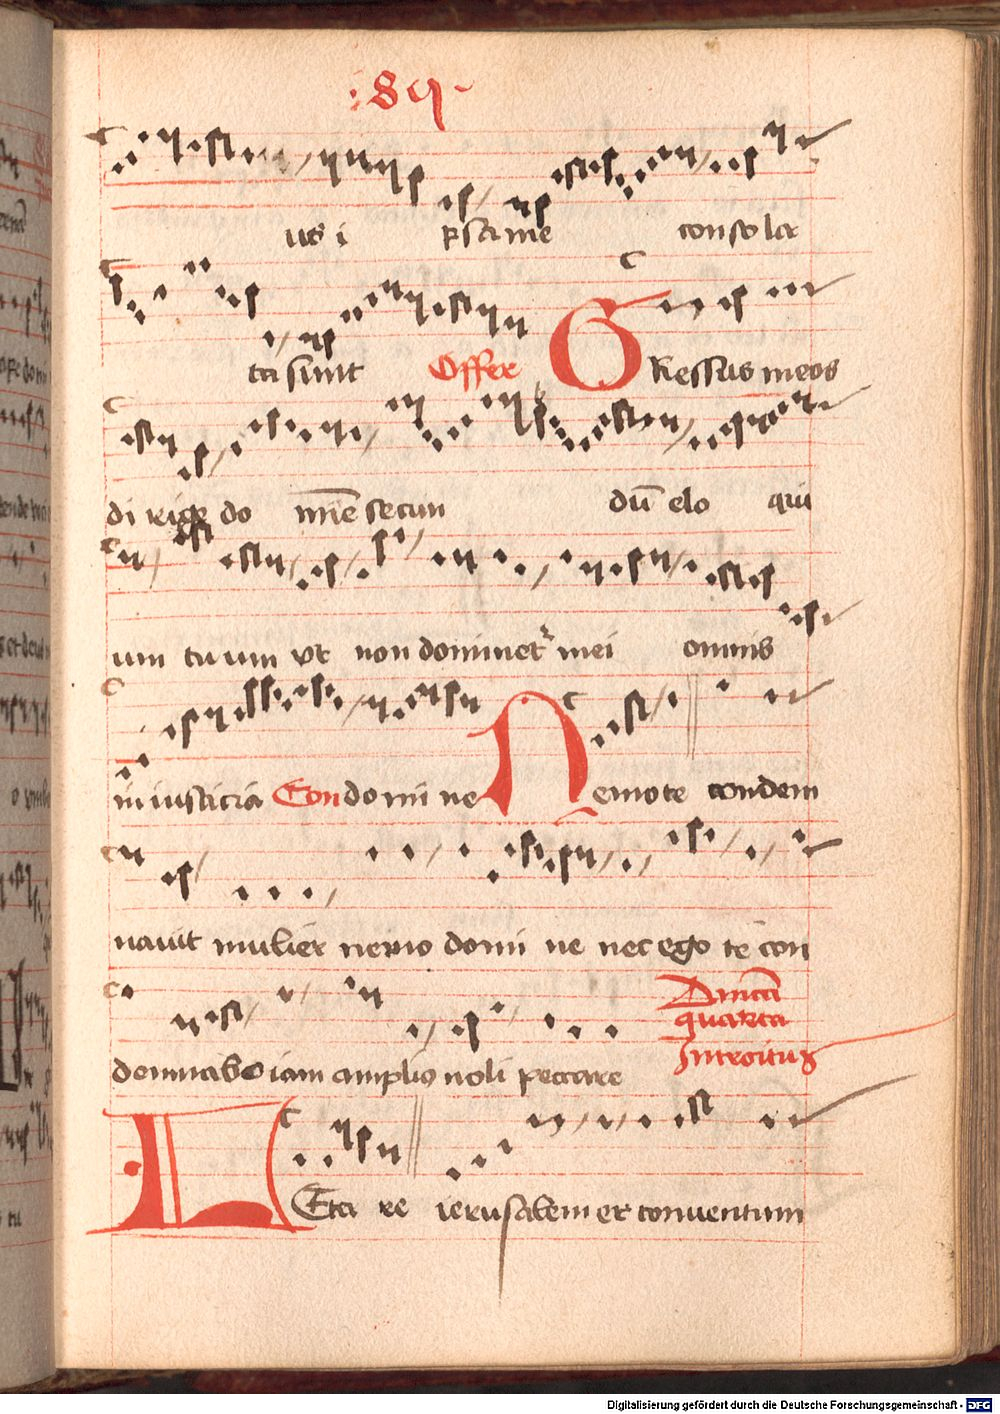 us i psa me consola
ta sunt Offer GRessus meos
di rige do mīe secun dū elo qui
um tuum ut non dominet mei omnis
iniusticia Con domi ne Nemo te condem
navit mulier nemo domi ne nec ego te con
demnabo iam amplius noli peccare
Dnica
quarta
Introitus
LEta re ierusalem et conventum
Digitalisierung gefördert durch die Deutsche Forschungsgemeinschaft - DFG